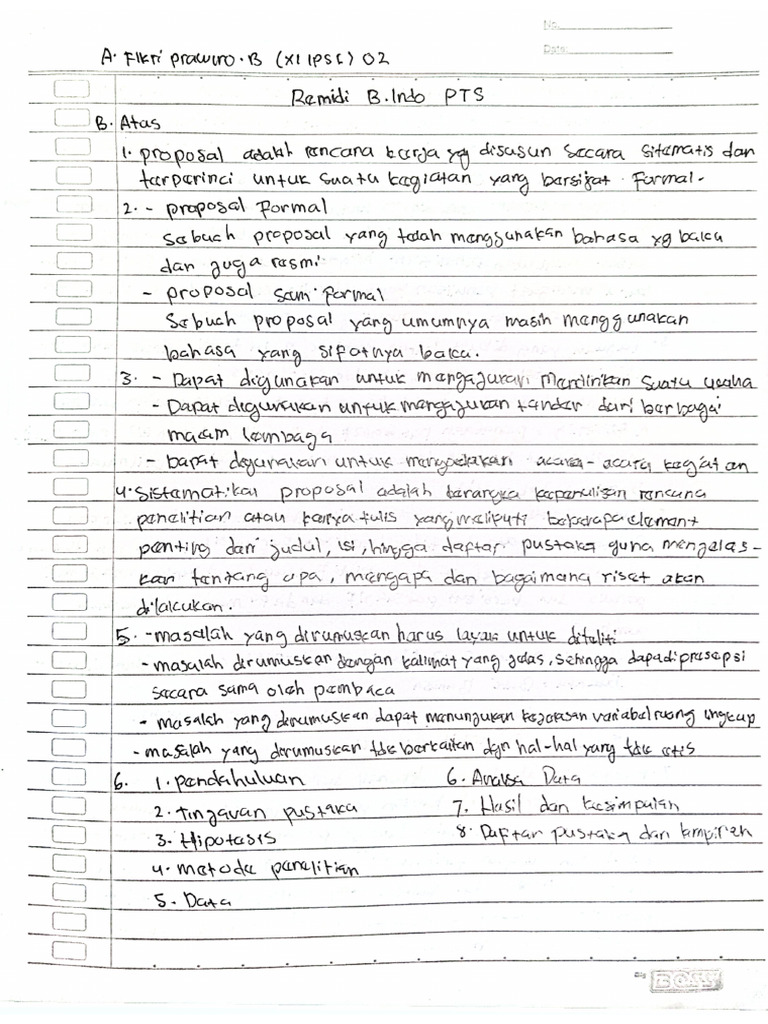 No.
Date:
A. Fikri prawiro. B (XI IPS 1) 02
Remidi B. Indo PTS
B. Atas
1. proposal adalah rencana kerja yg disusun secara sitematis dan
terperinci untuk suatu kegiatan yang bersifat formal.
2. - proposal formal
Sebuah proposal yang telah menggunakan bahasa yg baku
dan juga resmi
- proposal semi formal
Sebuah proposal yang umumnya masih menggunakan
bahasa yang sifatnya baku.
3. - Dapat digunakan untuk mengajukan mendirikan suatu usaha
- Dapat digunakan untuk mengajukan tender dari berbagai
macam lembaga
- Dapat digunakan untuk mengadakan acara-acara kegiatan
4. Sistematikan proposal adalah kerangka kepenulisan rencana
penelitian atau karya tulis yang meliputi beberapa element
penting dari judul, isi, hingga daftar pustaka guna menjelas-
kan tentang apa, mengapa dan bagaimana riset akan
dilakukan.
5. - masalah yang dirumuskan harus layak untuk diteliti
- masalah dirumuskan dengan kalimat yang jelas, sehingga dapadipresepsi
secara sama oleh pembaca
- masalah yang dirumuskan dapat menunjukan kejelasan variabel ruang lingkup
- masalah yang dirumuskan tdk berkaitan dgn hal-hal yang tdk etis
6. 1. pendahuluan 6. Analisa Data
2. tinjauan pustaka 7. Hasil dan kesimpulan
3. Hipotesis 8. Daftar pustaka dan lampiran
4. metode penelitian
5. Data
BOSS